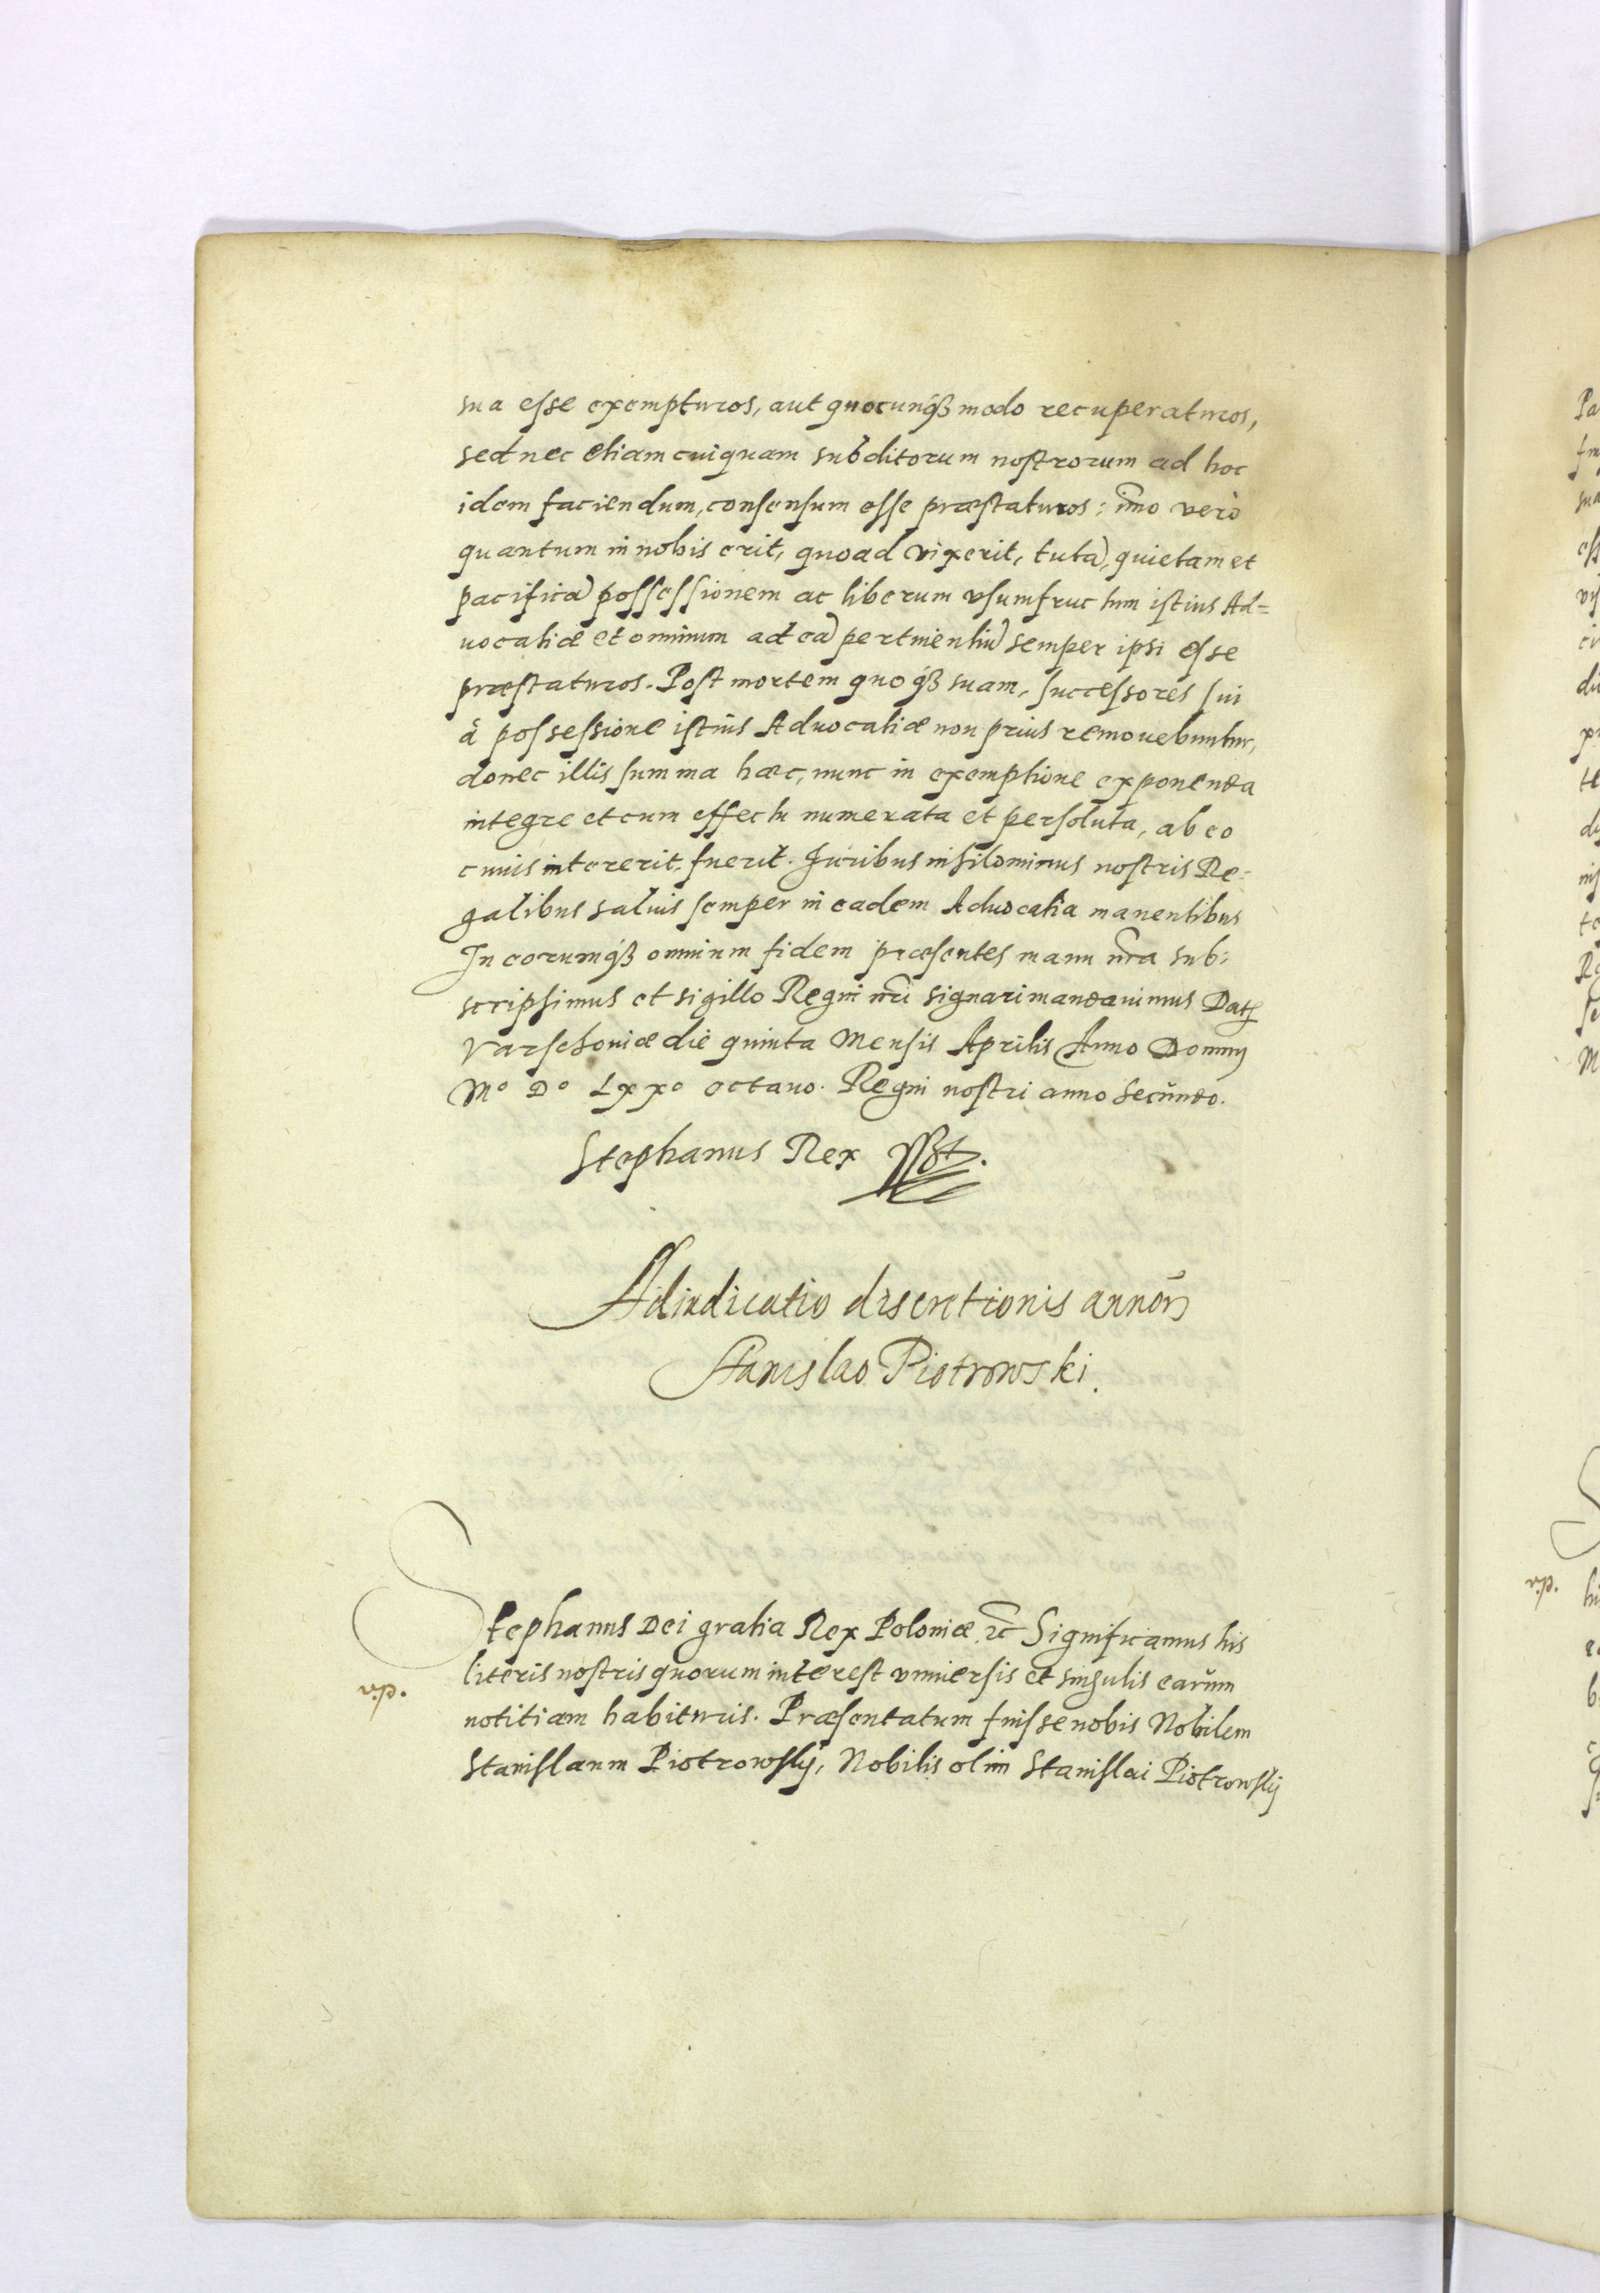 sua esse exempturos, aut quocunqꝫ modo recuperaturos,
sed nec etiam cuiquam subditorum nostrorum ad hoc
idem faciendum, consensum esse præstaturos: im̃o verò
quantum in nobis erit, quoad vixerit, tutã, quietam et
pacificã possessionem ac liberum vsumfructum istius Ad=
uocatiæ et omnium ad eã pertinentiũ semper ipsi esse
præstaturos. Post mortem quoqꝫ suam, successores sui
à possessione istius Aduocatiæ non prius remouebuntur,
donec illis summa hæc, nunc in exemptione exponenda
integre et cum effectu numerata et persoluta, ab eo
cuius intererit, fuerit. Iuribus nihilominus nostris Re-
galibus saluis semper in eadem Aduocatia manentibus
In eorumqꝫ omnium fidem præsentes manu nr̃a sub:
scripsimus et sigillo Regni nr̃i signari mandauimus Datꝭ
Varschouiæ die quinta Mensis Aprilis Anno Domini
Mº Dº Lxxº octauo. Regni nostri anno secundo.
Stephanus Rex sst.
Adiudicatio discretionis annor̃
Stanislao Piotrowski.
Stephanus Dei gratia Rex Poloniæ ꝛc̃ Significamus his
literis nostris quorum interest vniuersis et singulis earum
notitiam habituris. Præsentatum fuisse nobis Nobilem
Stanislaum Piotrowsky, Nobilis olim Stanislai Piotrowsky